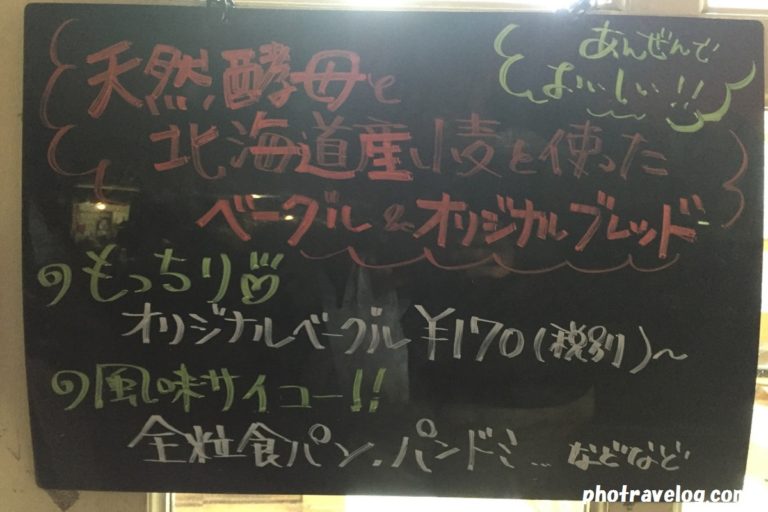 あんぜんで
おいしい!!
天然酵母と
北海道産小麦を使った
ベーグル&オリジナルブレッド
のもっちり
オリジナルベーグル ¥170(税別)〜
の風味サイコー!!
全粒食パン.パンドミ...などなど
photravelog.com